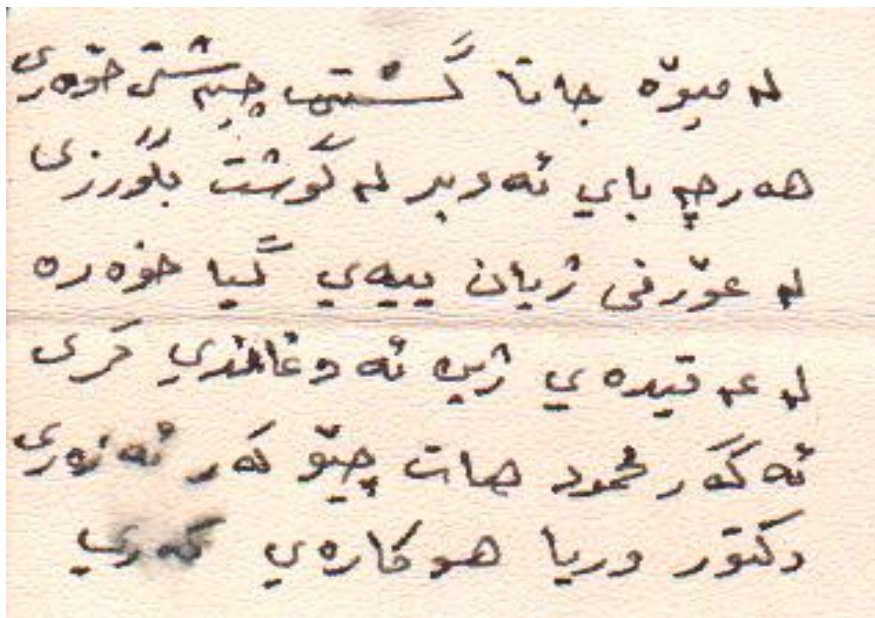 لە میوۆە جاتا گشتی چێشتی خۆەری
هەرچە بای ئەوبر لە گوشت بگورزی
لە عۆرفی ژیان پیەی گیا خۆەرە
لە عەقیدەی ژین ئە و کری
ئەگەر محمود هات چێو کەر ئەزەری
دکتۆر وریا هوکارەی کەری